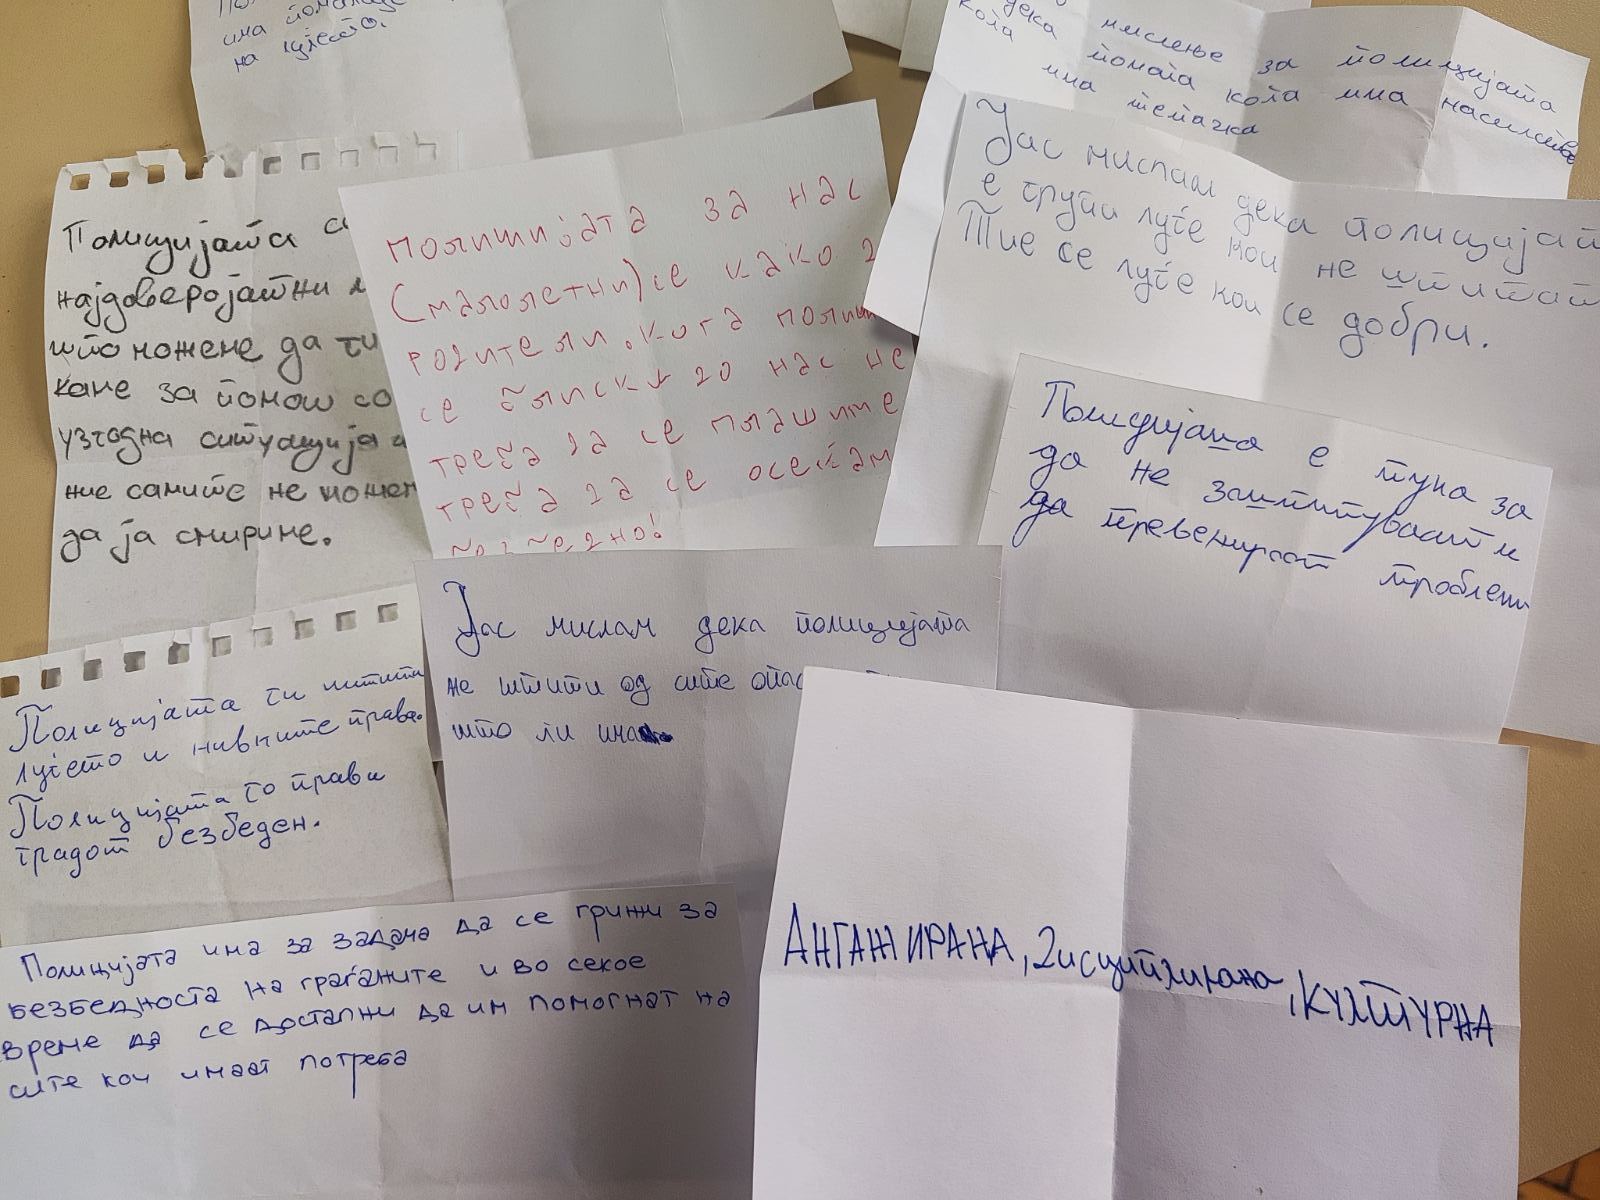 на луѓето.
мислење за полицијата
дека помага кога има насилство
кога има тепачка
Полицијата се
најдоверојатни
што можеме да ги
каме за помош со
узгодна ситуација
ние самите не можеме
да ја смириме.
полицијата за нас
(малолетни) се како
родители. кога
се блиску до нас не
треба да се плашите
треба да се осеќам
безбедно!
Јас мислам дека полицијат
е групи луѓе кои не штитат
Тие се луѓе кои се добри.
Полицијата е тука за
да не заштитуваат и
да превенираат проблеми
Полицијата ги штити
луѓето и нивните права.
Полицијата го прави
градот безбеден.
Јас мислам дека полицијата
не штити од сите
што ги има
Полицијата има за задача да се грижи за
безбедноста на граѓаните и во секое
време да се достапни да им помогнат на
сите кои имаат потреба
АНГАЖИРАНА, Дисциплинирана, КУЛТУРНА